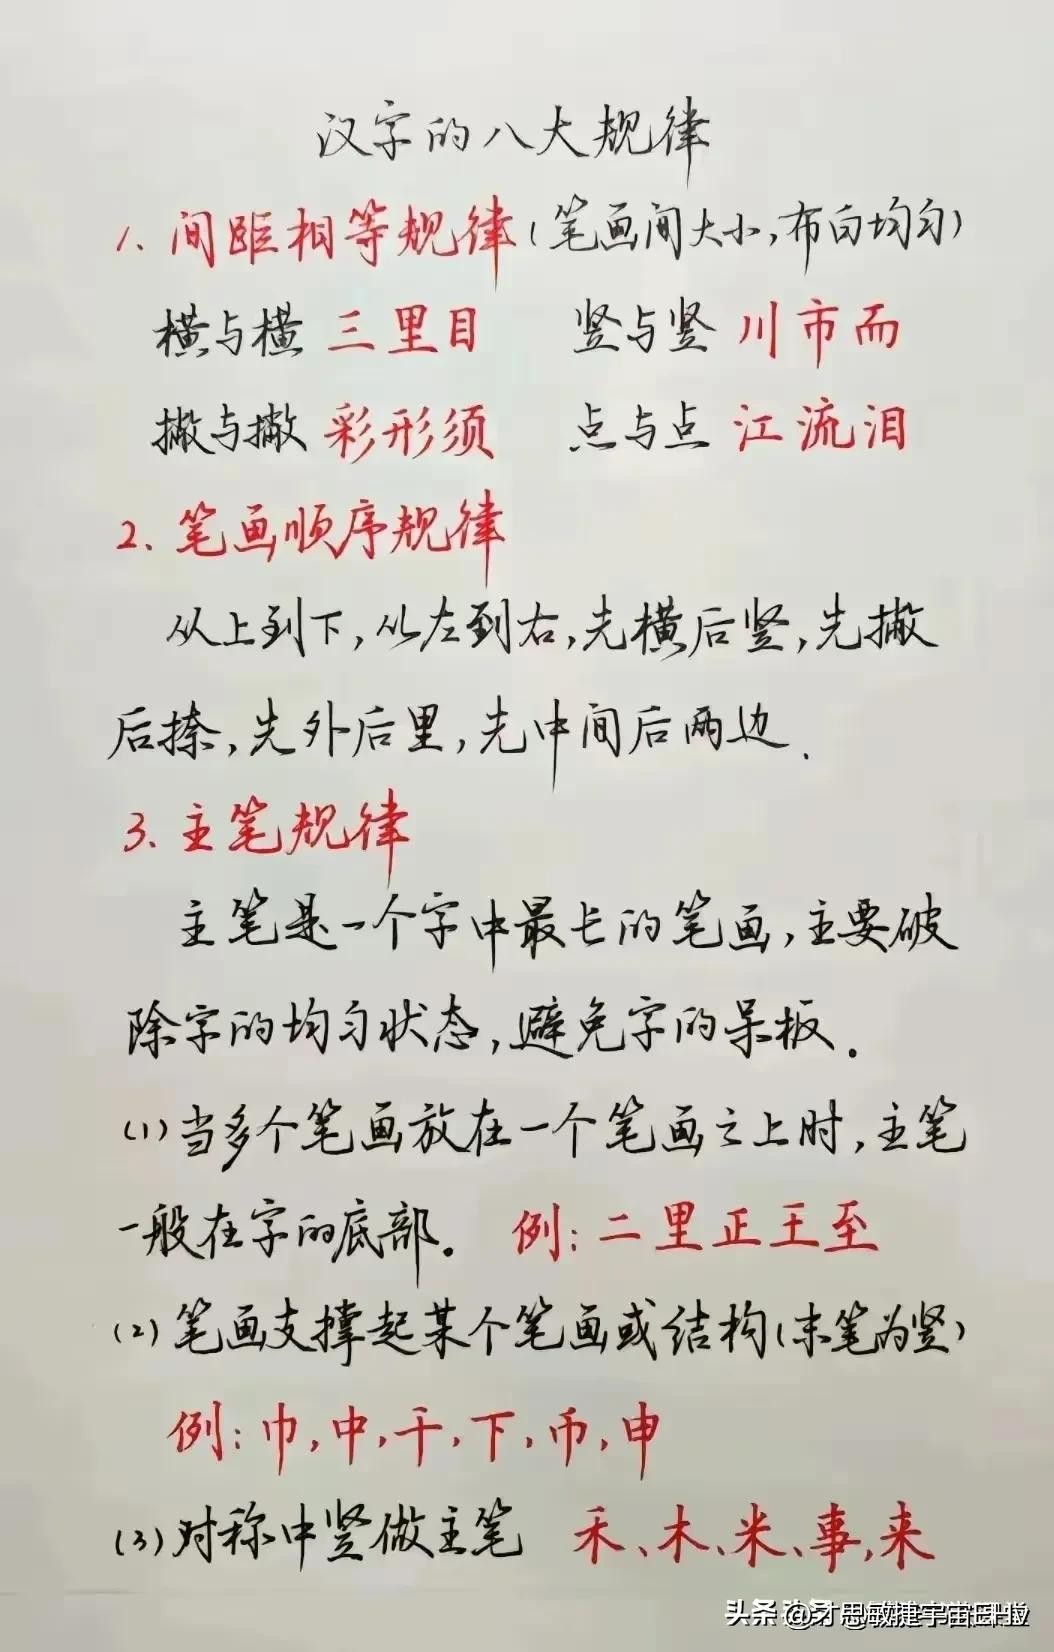 汉字的八大规律
1、间距相等规律(笔画间大小,布白均匀)
横与横 三里目 竖与竖 川市而
撇与撇 彩形须 点与点 江流泪
2、笔画顺序规律
从上到下,从左到右,先横后竖,先撇
后捺,先外后里,先中间后两边.
3、主笔规律
主笔是一个字中最长的笔画,主要破
除字的均匀状态,避免字的呆板.
(1)当多个笔画放在一个笔画之上时,主笔
一般在字的底部。 例:二里正王至
(2)笔画支撑起某个笔画或结构(末笔为竖)
例:巾,中,干,下,币,申
(3)对称中竖做主笔 禾、木、米、事,来
头条 @才思敏捷宇宙